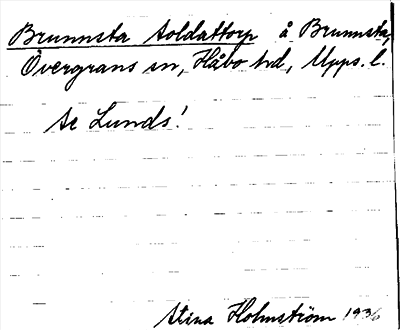 Brunnsta soldattorp å Brunnsta,
Övergrans sn, Håbo hd, Upps. l.
se Lunds!
Stina Holmström 1936